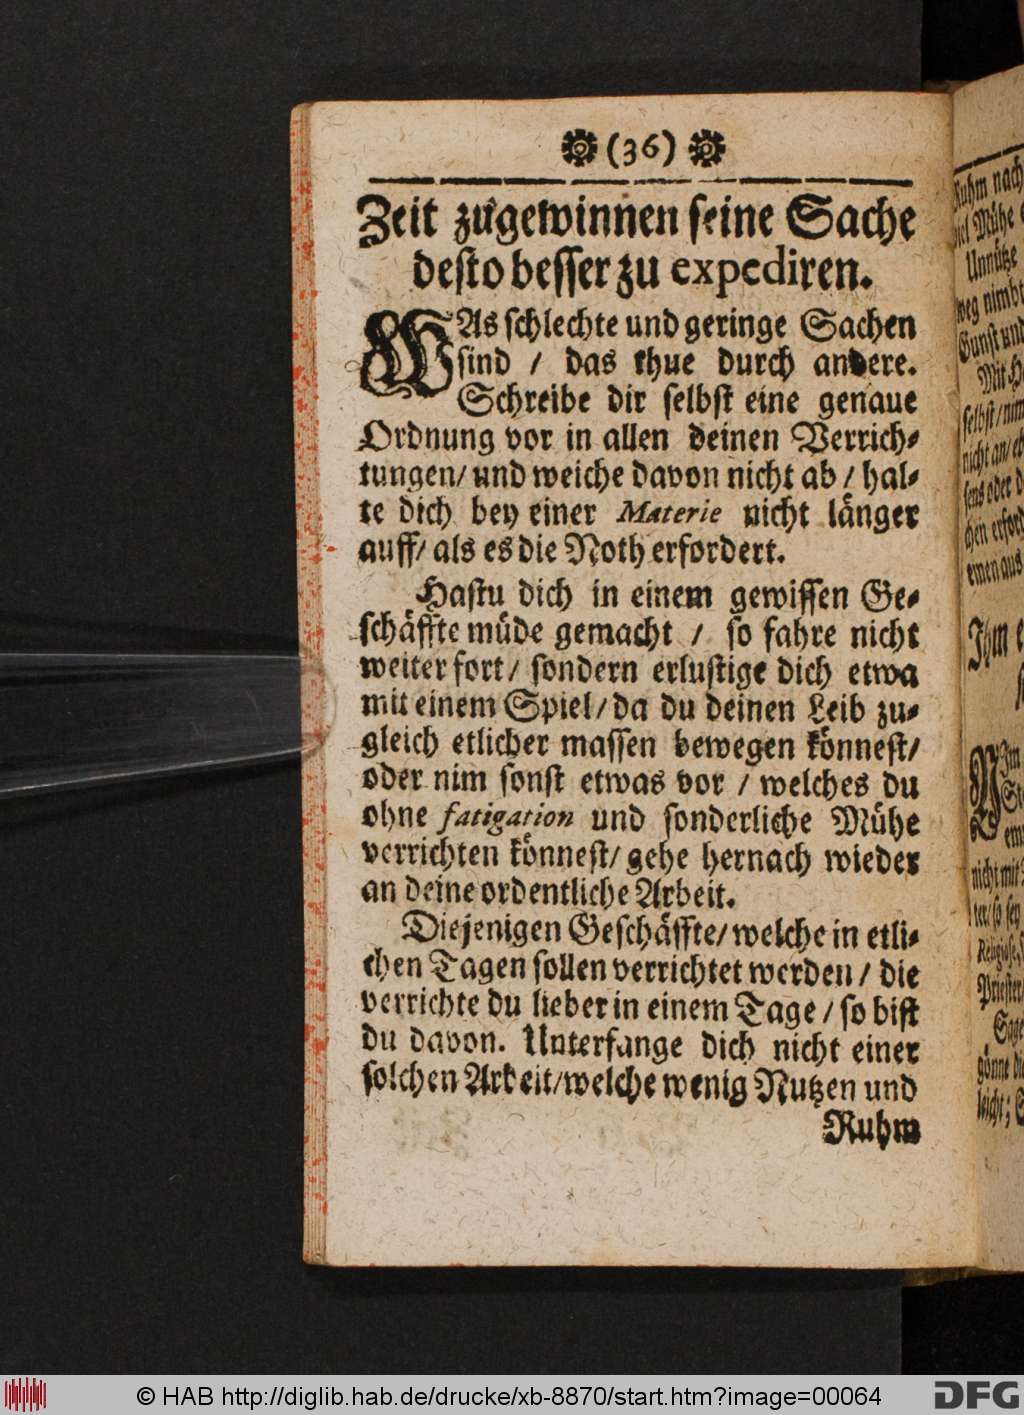 (36)
Zeit zugewinnen seine Sache
desto besser zu expediren.
WAs schlechte und geringe Sachen
sind / das thue durch andere.
Schreibe dir selbst eine genaue
Ordnung vor in allen deinen Verrich-
tungen/ und weiche davon nicht ab / hal-
te dich bey einer Materie nicht länger
auff/ als es die Noth erfordert.
Hastu dich in einem gewissen Ge-
schäffte müde gemacht / so fahre nicht
weiter fort/ sondern erlustige dich etwa
mit einem Spiel/ da du deinen Leib zu-
gleich etlicher massen bewegen könnest/
oder nim sonst etwas vor / welches du
ohne fatigation und sonderliche Mühe
verrichten könnest/ gehe hernach wieder
an deine ordentliche Arbeit.
Diejenigen Geschäffte/ welche in etli-
chen Tagen sollen verrichtet werden / die
verrichte du lieber in einem Tage / so bist
du davon. Unterfange dich nicht einer
solchen Arbeit/ welche wenig Nutzen und
Ruhm
Ruhm nach
viel Mühe
Unnütze
weg nimbt
Gunst und
selbst/ nim
nicht an/
sens oder
chen erford
Ihm
nicht mit
ter/ so sey
Religiose,
Priester/
Sage
gönne
leicht;
© HAB http://diglib.hab.de/drucke/xb-8870/start.htm?image=00064
DFG